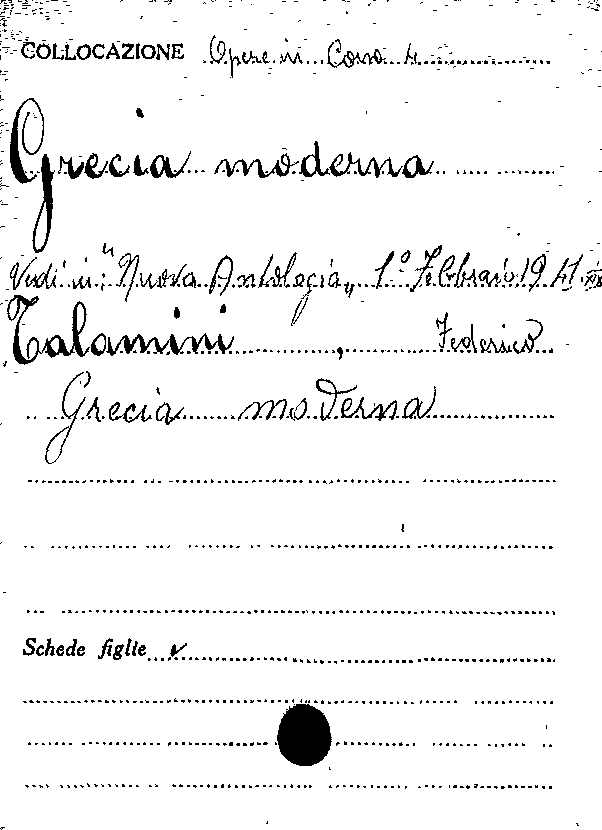 COLLOCAZIONE Opere in Corso 4
Grecia moderna
Vedi in: "Nuova Antologia„ 1.º Febbraio 1941 XIX
Talamini, Federico
Grecia moderna
Schede figlie ✓